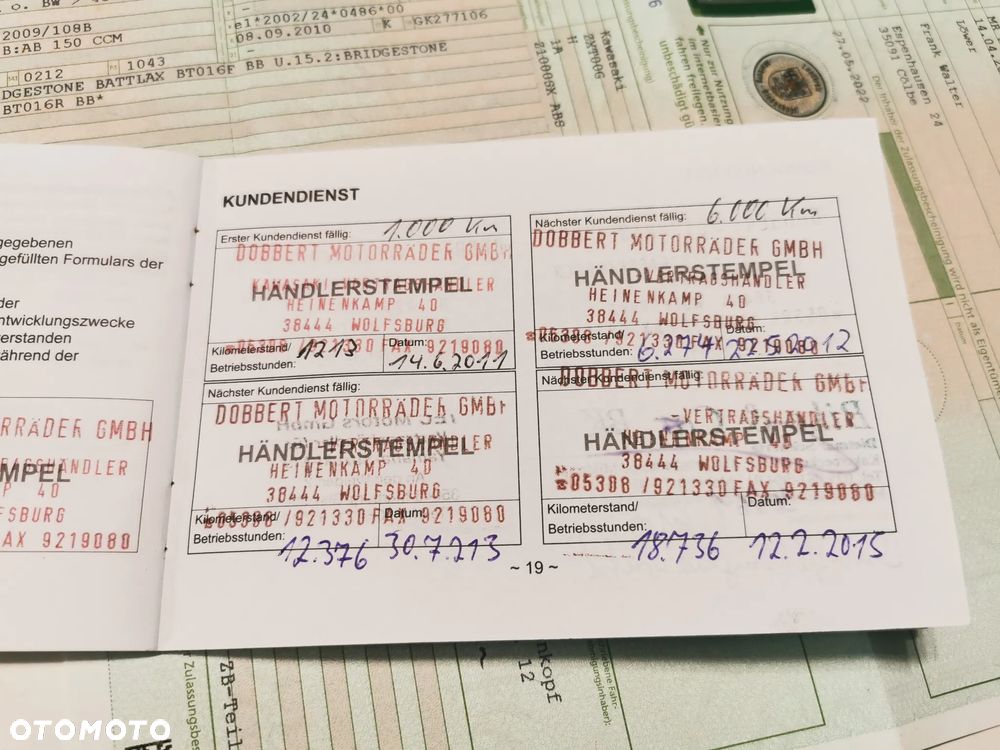 2009/108B
B:AB 150 CCM
0212
1043
e1*2002/24*0486*00
08.09.2010
K
GK277106
DGESTONE BATTLAX BT016F BB U.15.2:BRIDGESTONE
BT016R BB*
Kawasaki
ZXT00G
H
1A
Z1000SX ABS
Nur zur Nutzung
im internetbasier
fahren freilegen.
unbeschädigt
27.05.2022
Löwer
Frank Walter
Espenhausen 24
35091 Cölbe
Inhaber der Zulassungsbescheinigung wird nicht als Eigentüm
Datum
gegebenen
gefüllten Formulars der
der
ntwicklungszwecke
erstanden
während der
RRÄDER GMBH
RAGSHÄNDLER
MPEL
P 40
FSBURG
AX 9219080
KUNDENDIENST
Erster Kundendienst fällig: 1.000 Km
DOBBERT MOTORRÄDER GMBH
HÄNDLERSTEMPEL
HEINENKAMP 40
38444 WOLFSBURG
05308 /921330 FAX 9219080
Kilometerstand/
Betriebsstunden: 1213
Datum: 14.6.2011
Nächster Kundendienst fällig: 6.000 Km
DOBBERT MOTORRÄDER GMBH
-VERTRAGSHÄNDLER
HÄNDLERSTEMPEL
HEINENKAMP 40
38444 WOLFSBURG
05308 /921330 FAX 9219080
Kilometerstand/
Betriebsstunden: 6.274
Datum: 22.5.2012
Nächster Kundendienst fällig:
DOBBERT MOTORRÄDER GMBH
-VERTRAGSHÄNDLER
HÄNDLERSTEMPEL
HEINENKAMP 40
38444 WOLFSBURG
05308 /921330 FAX 9219080
Kilometerstand/
Betriebsstunden: 12.376
Datum: 30.7.213
Nächster Kundendienst fällig:
DOBBERT MOTORRÄDER GMBH
-VERTRAGSHÄNDLER
HÄNDLERSTEMPEL
38444 WOLFSBURG
05308 /921330 FAX 9219080
Kilometerstand/
Betriebsstunden: 18.736
Datum: 12.2.2015
~ 19 ~
der Zulassungsbes
ZB-Teil
nkopf
12
OTOMOTO